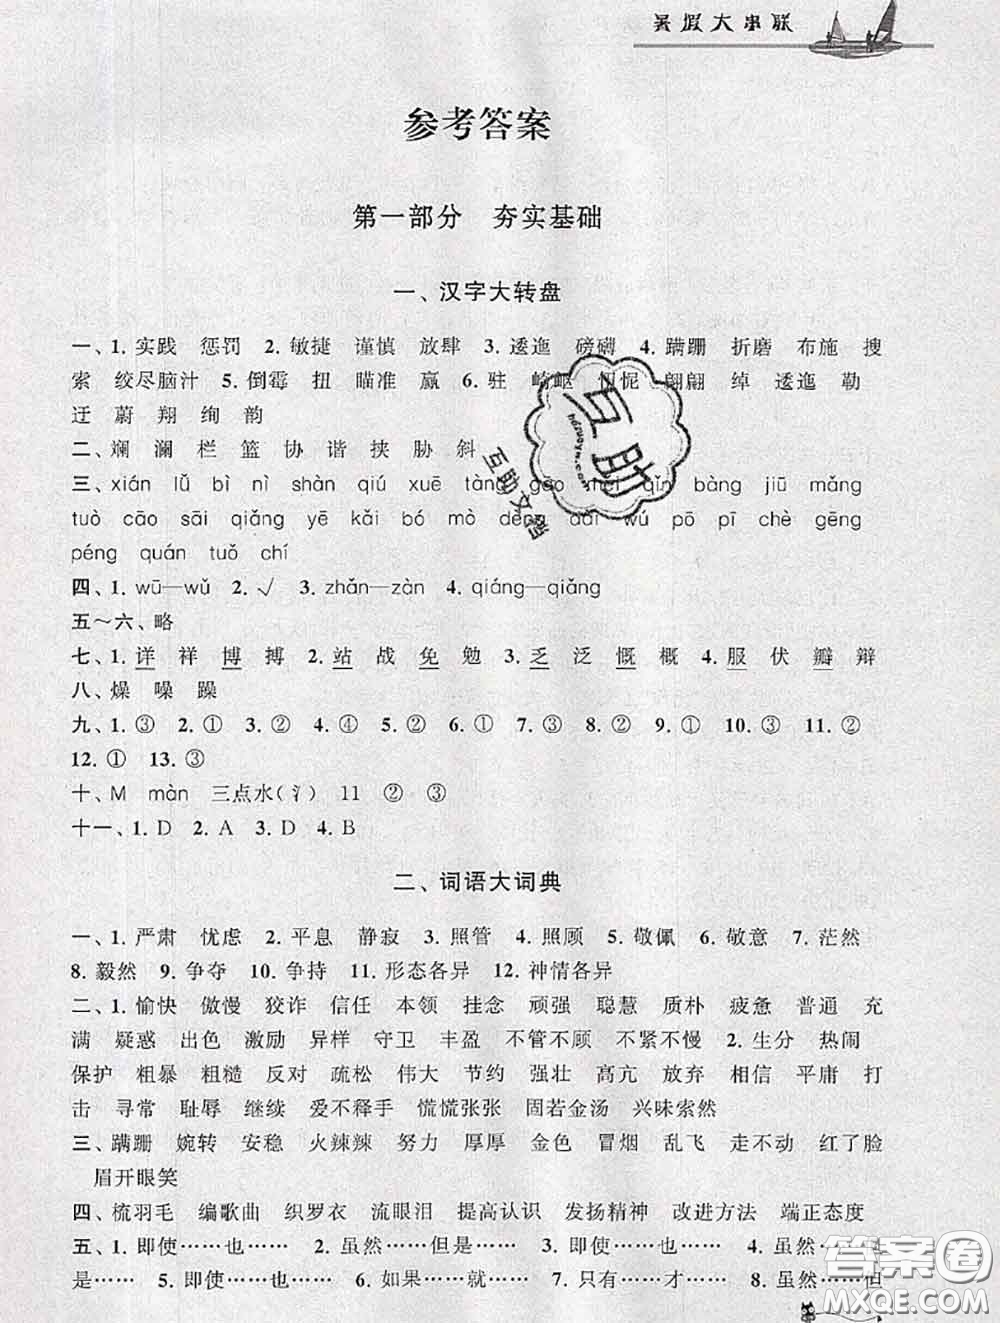 暑假大串联
参考答案
第一部分 夯实基础
一、汉字大转盘
一、1. 实践 惩罚 2. 敏捷 谨慎 放肆 3. 逶迤 磅礴 4. 蹒跚 折磨 布施 搜
索 绞尽脑汁 5. 倒霉 扭 瞄准 赢 6. 驻 崎岖 忸怩 翩翩 绰 逶迤 勒
迂 蔚 翔 绚 韵
二、斓 澜 栏 篮 协 谐 挟 胁 斜
三、xián lǔ bì nì shàn qiú xuē tàng gēng gāo qǐn bàng jiū mǎng
tuò cāo sāi qiǎng yē kǎi bó mò dèng dai wú pō pī chè gēng
péng quán tuǒ chí
四、1. wū—wǔ 2. √ 3. zhǎn—zàn 4. qiáng—qiǎng
五～六、略
七、1. 详 祥 博 搏 2. 站 战 免 勉 3. 乏 泛 慨 概 4. 服 伏 瓣 辩
八、燥 噪 躁
九、1. ③ 2. ① 3. ② 4. ④ 5. ② 6. ① 7. ③ 8. ② 9. ① 10. ③ 11. ②
12. ① 13. ③
十、M màn 三点水(氵) 11 ② ③
十一、1. D 2. A 3. D 4. B
二、词语大词典
一、1. 严肃 忧虑 2. 平息 静寂 3. 照管 4. 照顾 5. 敬佩 6. 敬意 7. 茫然
8. 毅然 9. 争夺 10. 争持 11. 形态各异 12. 神情各异
二、1. 愉快 傲慢 狡诈 信任 本领 挂念 顽强 聪慧 质朴 疲惫 普通 充
满 疑惑 出色 激励 异样 守卫 丰盈 不管不顾 不紧不慢 2. 生分 热闹
保护 粗暴 粗糙 反对 疏松 伟大 节约 强壮 高亢 放弃 相信 平庸 打
击 寻常 耻辱 继续 爱不释手 慌慌张张 固若金汤 兴味索然
三、蹒跚 婉转 安稳 火辣辣 努力 厚厚 金色 冒烟 乱飞 走不动 红了脸
眉开眼笑
四、梳羽毛 编歌曲 织罗衣 流眼泪 提高认识 发扬精神 改进方法 端正态度
五、1. 即使……也…… 2. 虽然……但是…… 3. 即使……也…… 4. 虽然……
是…… 5. 即使……也…… 6. 如果……就…… 7. 只有……才…… 8. 虽然……但
互助
互助文
hdzuoye.com
答案圈
MXQE.COM